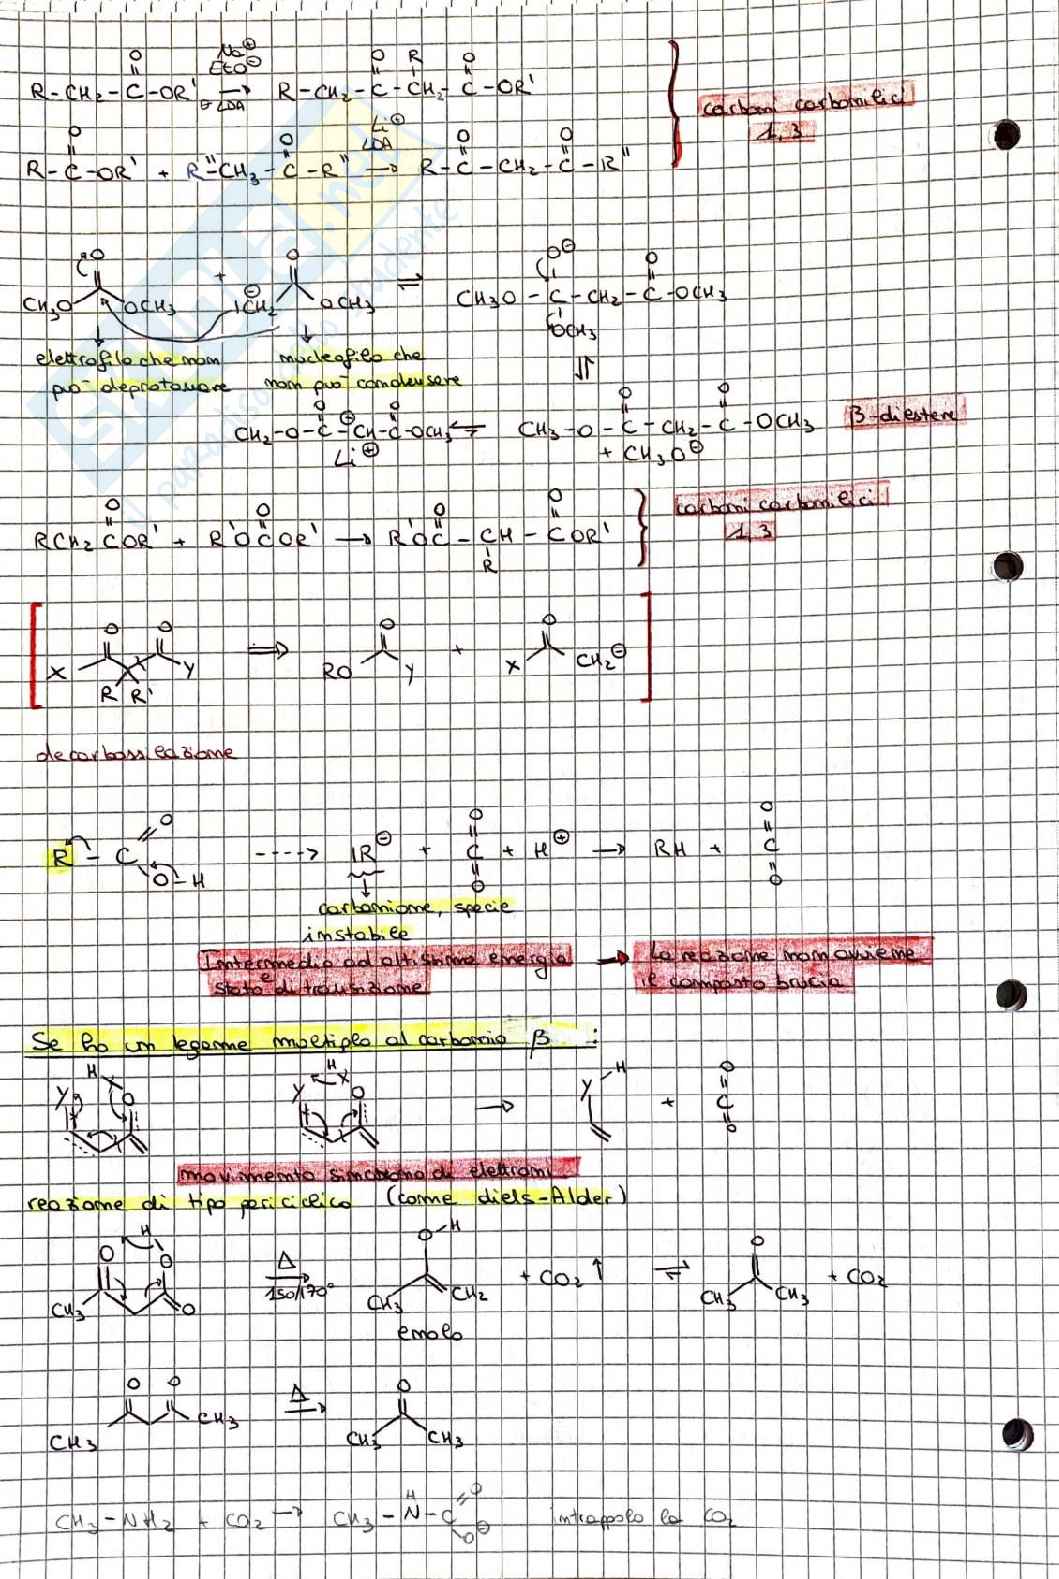 Na⊕
EtO⊖
R-CH₂-C(=O)-OR' → R-CH₂-C(=O)-CH₂(R)-C(=O)-OR'
o LDA
carboni carbonilici
1,3
Li⊕
LDA
R-C(=O)-OR' + R''-CH₃-C(=O)-R'' → R-C(=O)-CH₂-C(=O)-R''
CH₃O OCH₃ + CH₂⊖ OCH₃ ⇌ CH₃O-C(O⊖)(OCH₃)-CH₂-C(=O)-OCH₃
elettrofilo che non
può deprotonare
nucleofilo che
non può condensare
CH₂-O-C(=O)-CH-C(=O)-OCH₃ ⇌ CH₃-O-C(=O)-CH₂-C(=O)-OCH₃ β-diestere
Li⊕
+ CH₃O⊖
RCH₂C(=O)OR' + R'OC(=O)OR' → R'OC(=O)-CH(R)-C(=O)OR'
carboni carbonilici
1,3
X O O Y R R' ⇒ RO O Y + X O CH₂⊖
decarbossilazione
R-C(=O)-O-H ----> |R⊖ + O=C=O + H⊕ → RH + O=C=O
carbanione, specie
instabile
Intermedio ad altissima energia → La reazione non avviene
e
stato di transizione il composto brucia
Se ho un legame multiplo al carbonio β :
Y H X O Y H X O → Y H + O=C=O
movimento sincrono di elettroni
reazione di tipo periciclico (come diels-Alder)
CH₃ O H O O Δ 150/170° CH₃ O-H CH₂ + CO₂↑ ⇌ CH₃ O CH₃ + CO₂
enolo
CH₃ O O CH₃ Δ → CH₃ O CH₃
CH₃-NH₂ + CO₂ → CH₃-NH-C(=O)O⊖ intrappolo la CO₂